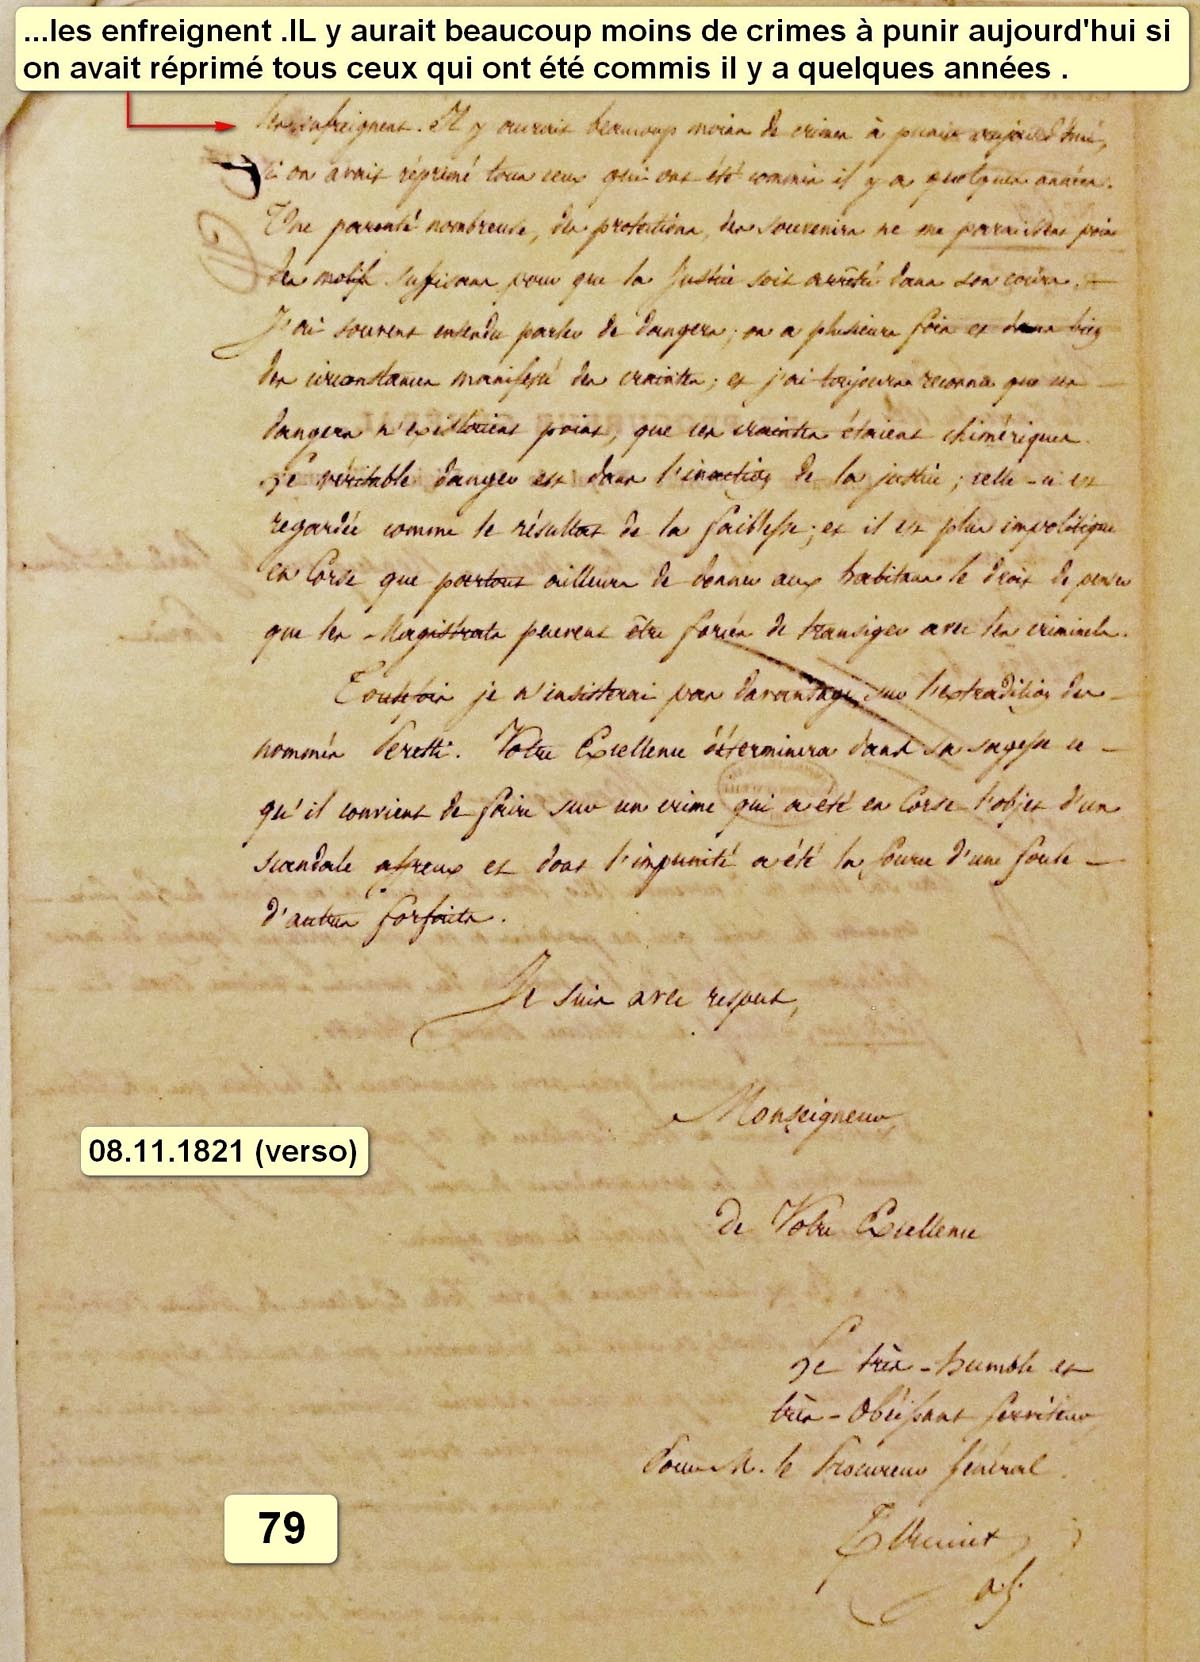 ...les enfreignent .IL y aurait beaucoup moins de crimes à punir aujourd'hui si
on avait réprimé tous ceux qui ont été commis il y a quelques années .
les enfreignent. Il y aurait beaucoup moins de crimes à punir aujourd'hui,
si on avait réprimé tous ceux qui ont été commis il y a quelques années.
Une parenté nombreuse, des protections, des souvenirs ne me paraissent point
des motifs suffisans pour que la Justice soit arrêtée dans son cours. —
J'ai souvent entendu parler de dangers; on a plusieurs fois et dans bien
des circonstances manifesté des craintes; et j'ai toujours reconnu que ces —
dangers n'existaient point, que ces craintes étaient chimériques.
Le véritable danger est dans l'inaction de la justice; celle-ci est
regardée comme le résultat de la faiblesse; et il est plus impolitique
en Corse que partout ailleurs de donner aux habitans le droit de penser
que les Magistrats peuvent être forcés de transiger avec les criminels.
Toutefois je n'insisterai pas davantage sur l'extradition des —
nommés Peretti. Votre Excellence déterminera dans sa sagesse ce —
qu'il convient de faire sur un crime qui a été en Corse l'objet d'un
scandale affreux et dont l'impunité a été la source d'une foule —
d'autres forfaits.
Je suis avec respect,
Monseigneur,
08.11.1821 (verso)
de Votre Excellence
Le très-humble et
très-Obéissant serviteur
Pour M. le Procureur Général
79
a.g.